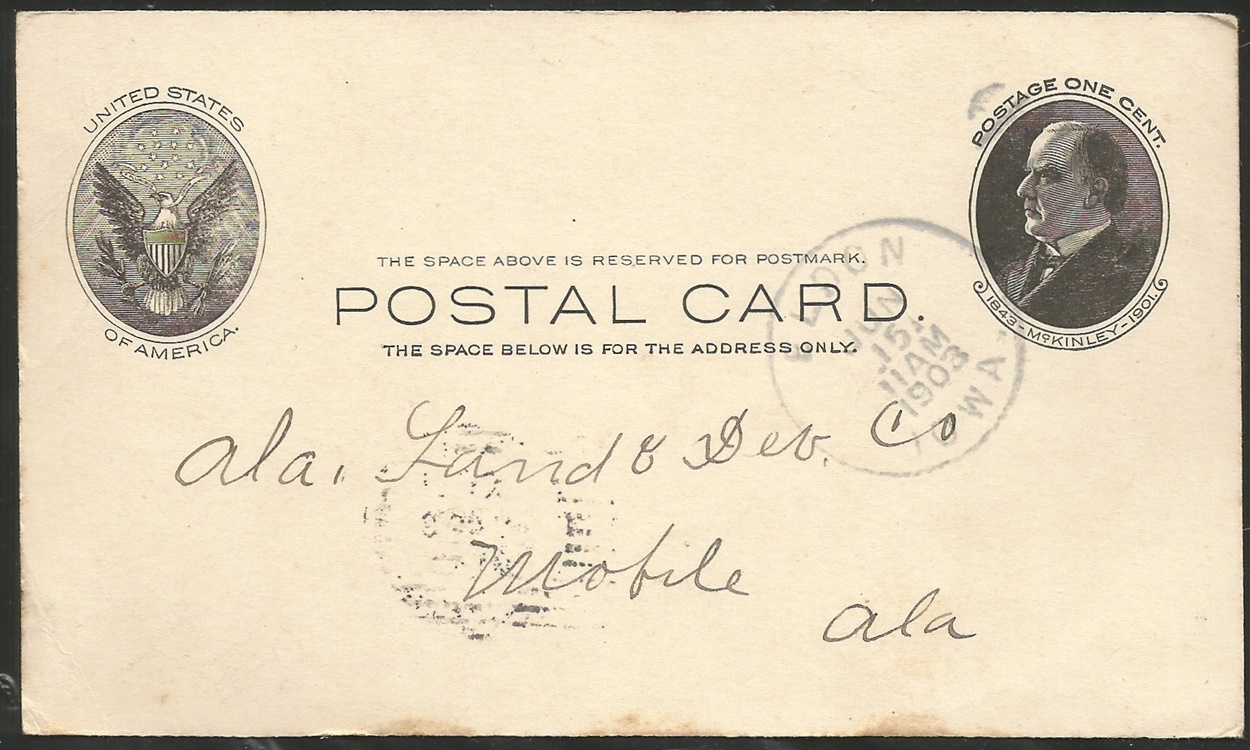 UNITED STATES
OF AMERICA.
POSTAGE ONE CENT.
1843-McKINLEY-1901.
THE SPACE ABOVE IS RESERVED FOR POSTMARK.
POSTAL CARD.
THE SPACE BELOW IS FOR THE ADDRESS ONLY.
ELDON
JUN
15
11AM
1903
IOWA
Ala. Land & Dev. Co
Mobile
Ala